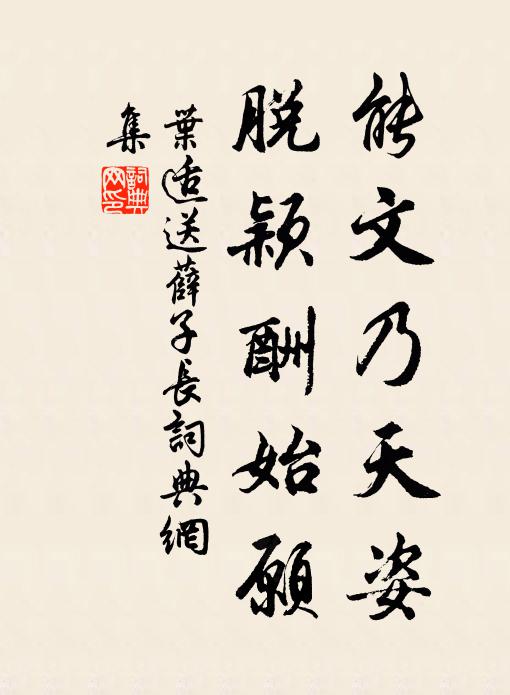 能文乃天姿
脱颖酬始願
葉适送薛子長詞典網
集
詞典網印